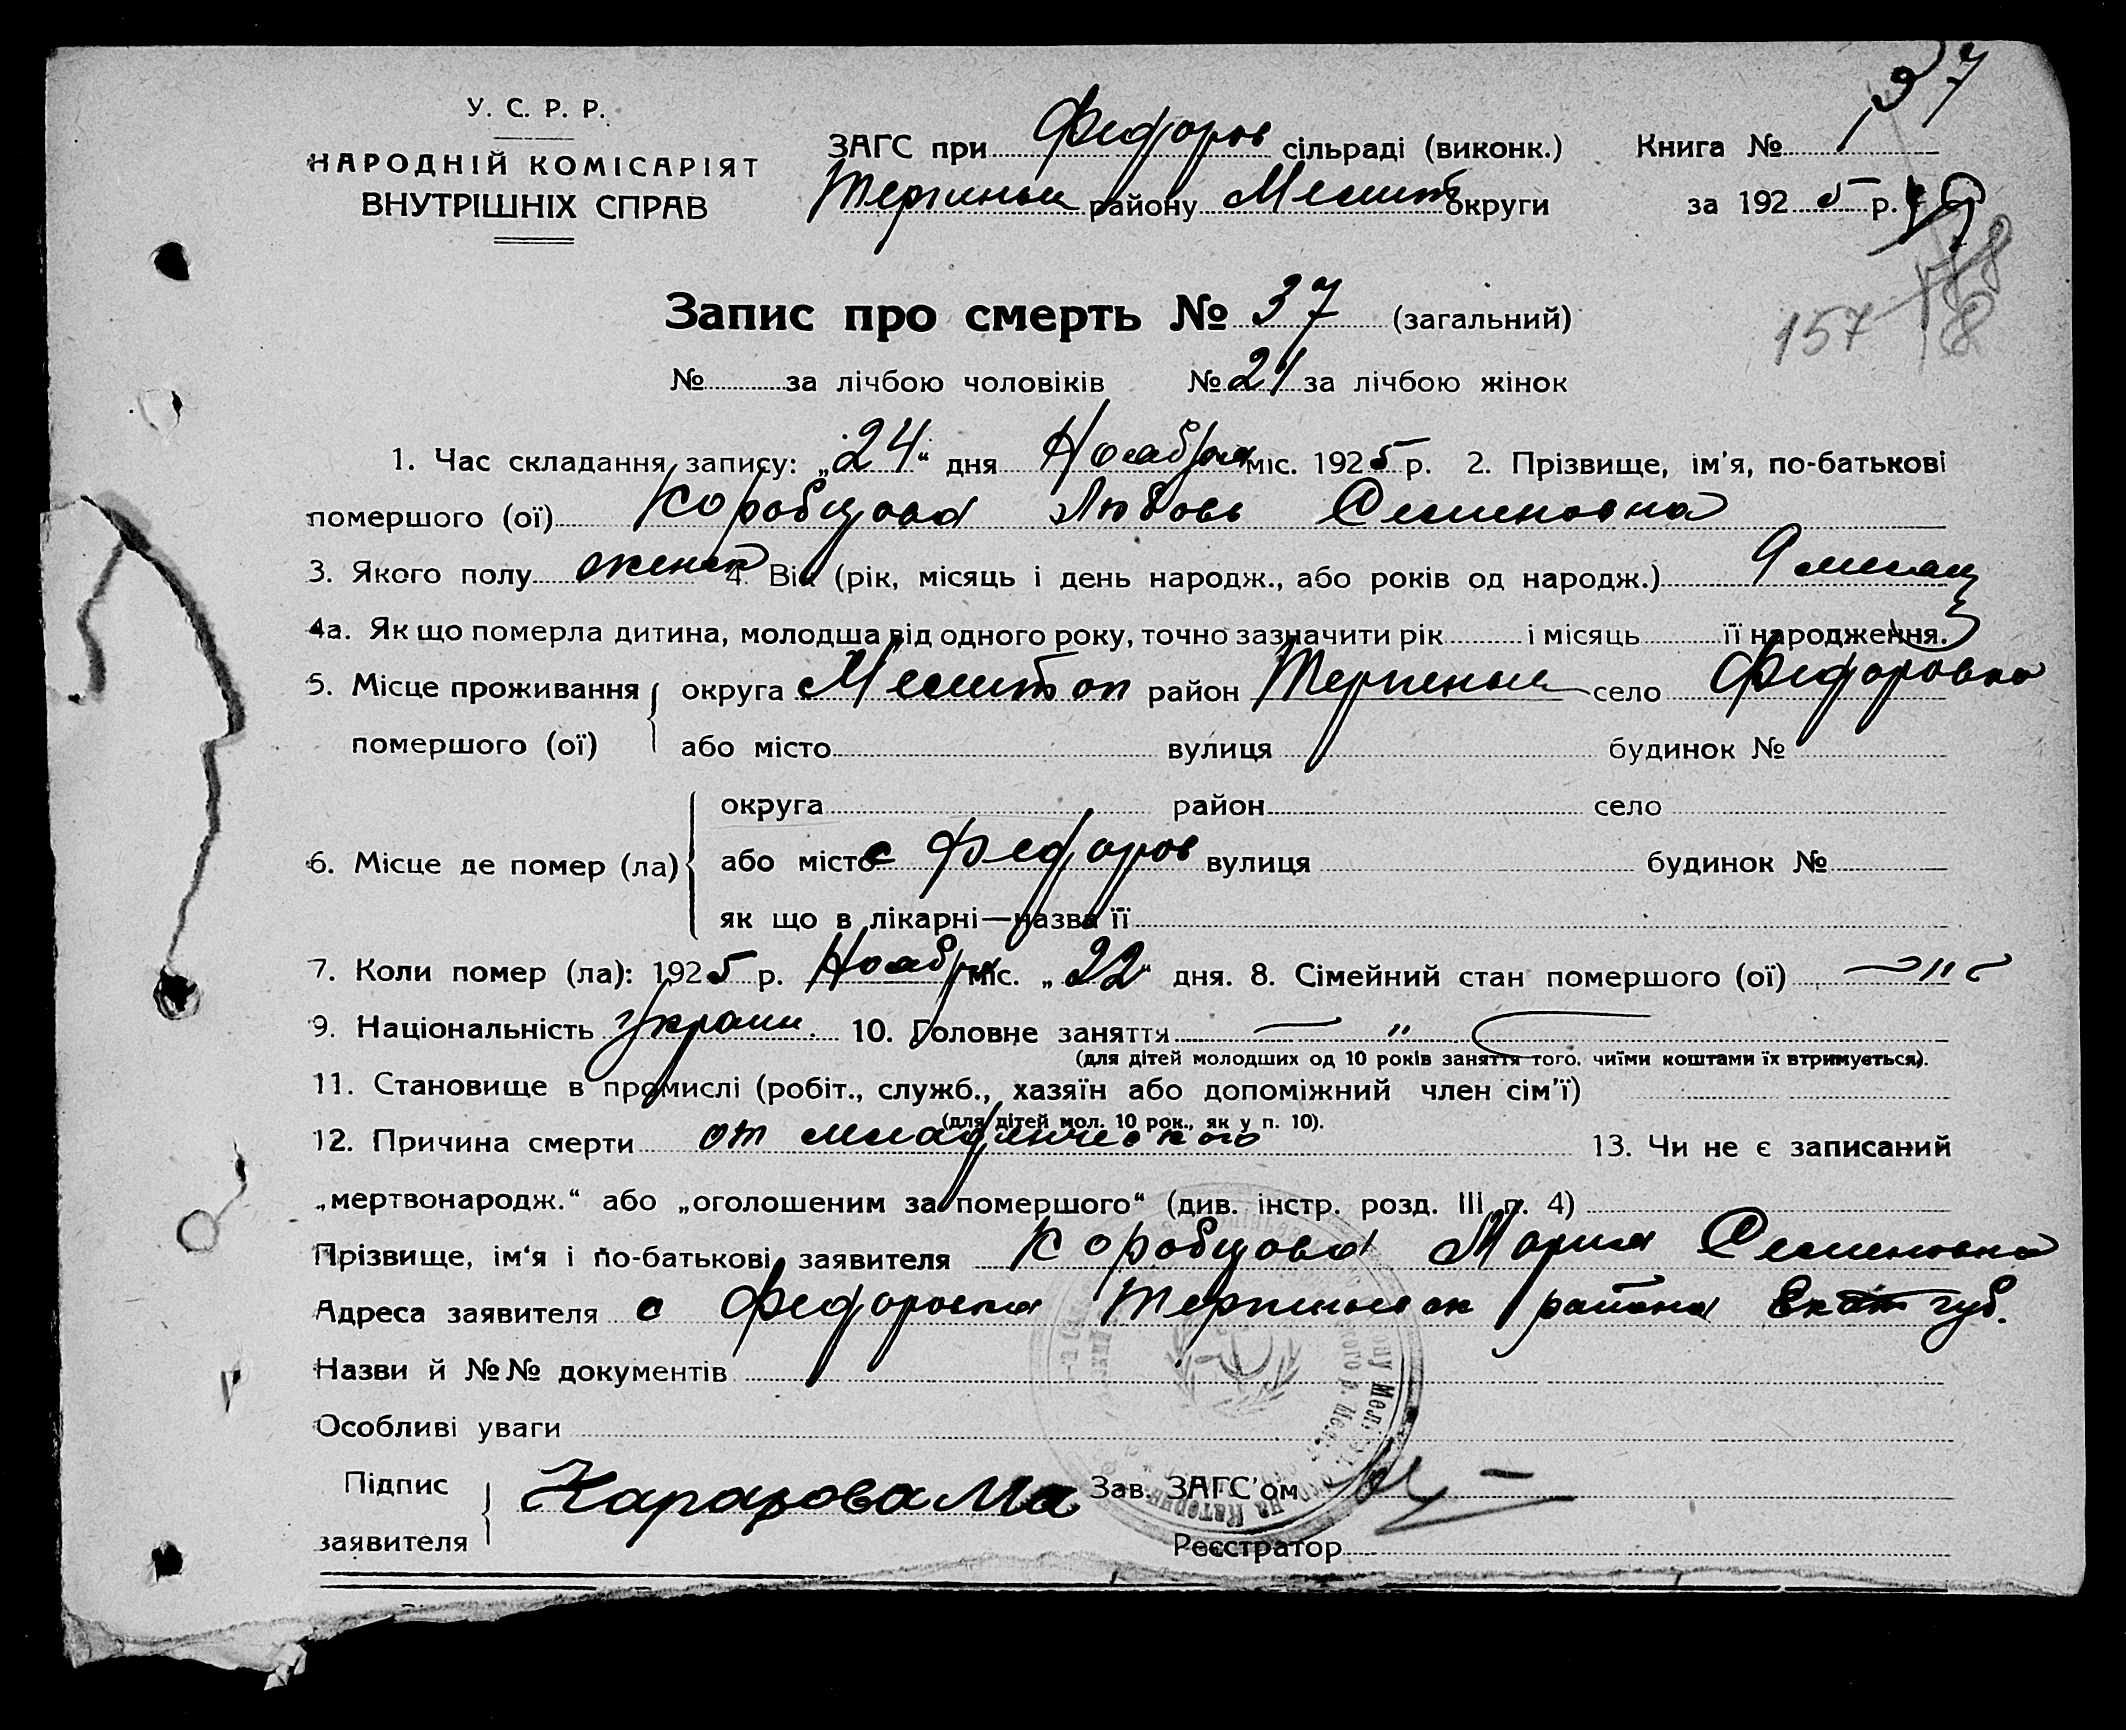 37
У. С. Р. Р.
НАРОДНІЙ КОМІСАРІЯТ
ВНУТРІШНІХ СПРАВ
ЗАГС при Федоров сільраді (виконк.) Книга № 1
району Мелит округи за 1925 р.
157
Запис про смерть № 37 (загальний)
№ за лічбою чоловіків № 21 за лічбою жінок
1. Час складання запису: „24“ дня Ноября міс. 1925 р. 2. Прізвище, ім'я, по-батькові
помершого (ої) Коробцова Любовь Семеновна
3. Якого полу женск 4. Вік (рік, місяць і день народж., або років од народж.) 9 месяц
4а. Як що померла дитина, молодша від одного року, точно зазначити рік і місяць її народження.
5. Місце проживання округа Мелитоп район Терпеньи село Федоровка
помершого (ої) або місто вулиця будинок №
округа район село
6. Місце де помер (ла) або місто с Федоров вулиця будинок №
як що в лікарні—назва її
7. Коли помер (ла): 1925 р. Ноября міс. „22“ дня. 8. Сімейний стан помершого (ої) — " —
9. Національність Украин. 10. Головне заняття — " —
(для дітей молодших од 10 років заняття того, чиїми коштами їх втримується).
11. Становище в промислі (робіт., служб., хазяїн або допоміжний член сім'ї)
(для дітей мол. 10 рок., як у п. 10).
12. Причина смерти от младенческого 13. Чи не є записаний
„мертвонародж.“ або „оголошеним за помершого“ (див. інстр. розд. III п. 4)
Прізвище, ім'я і по-батькові заявителя Коробцова Мария Семеновна
Адреса заявителя с Федоровка района Екат губ.
Назви й №№ документів
Особливі уваги
Підпис
заявителя
Зав. ЗАГС'ом
Реєстратор